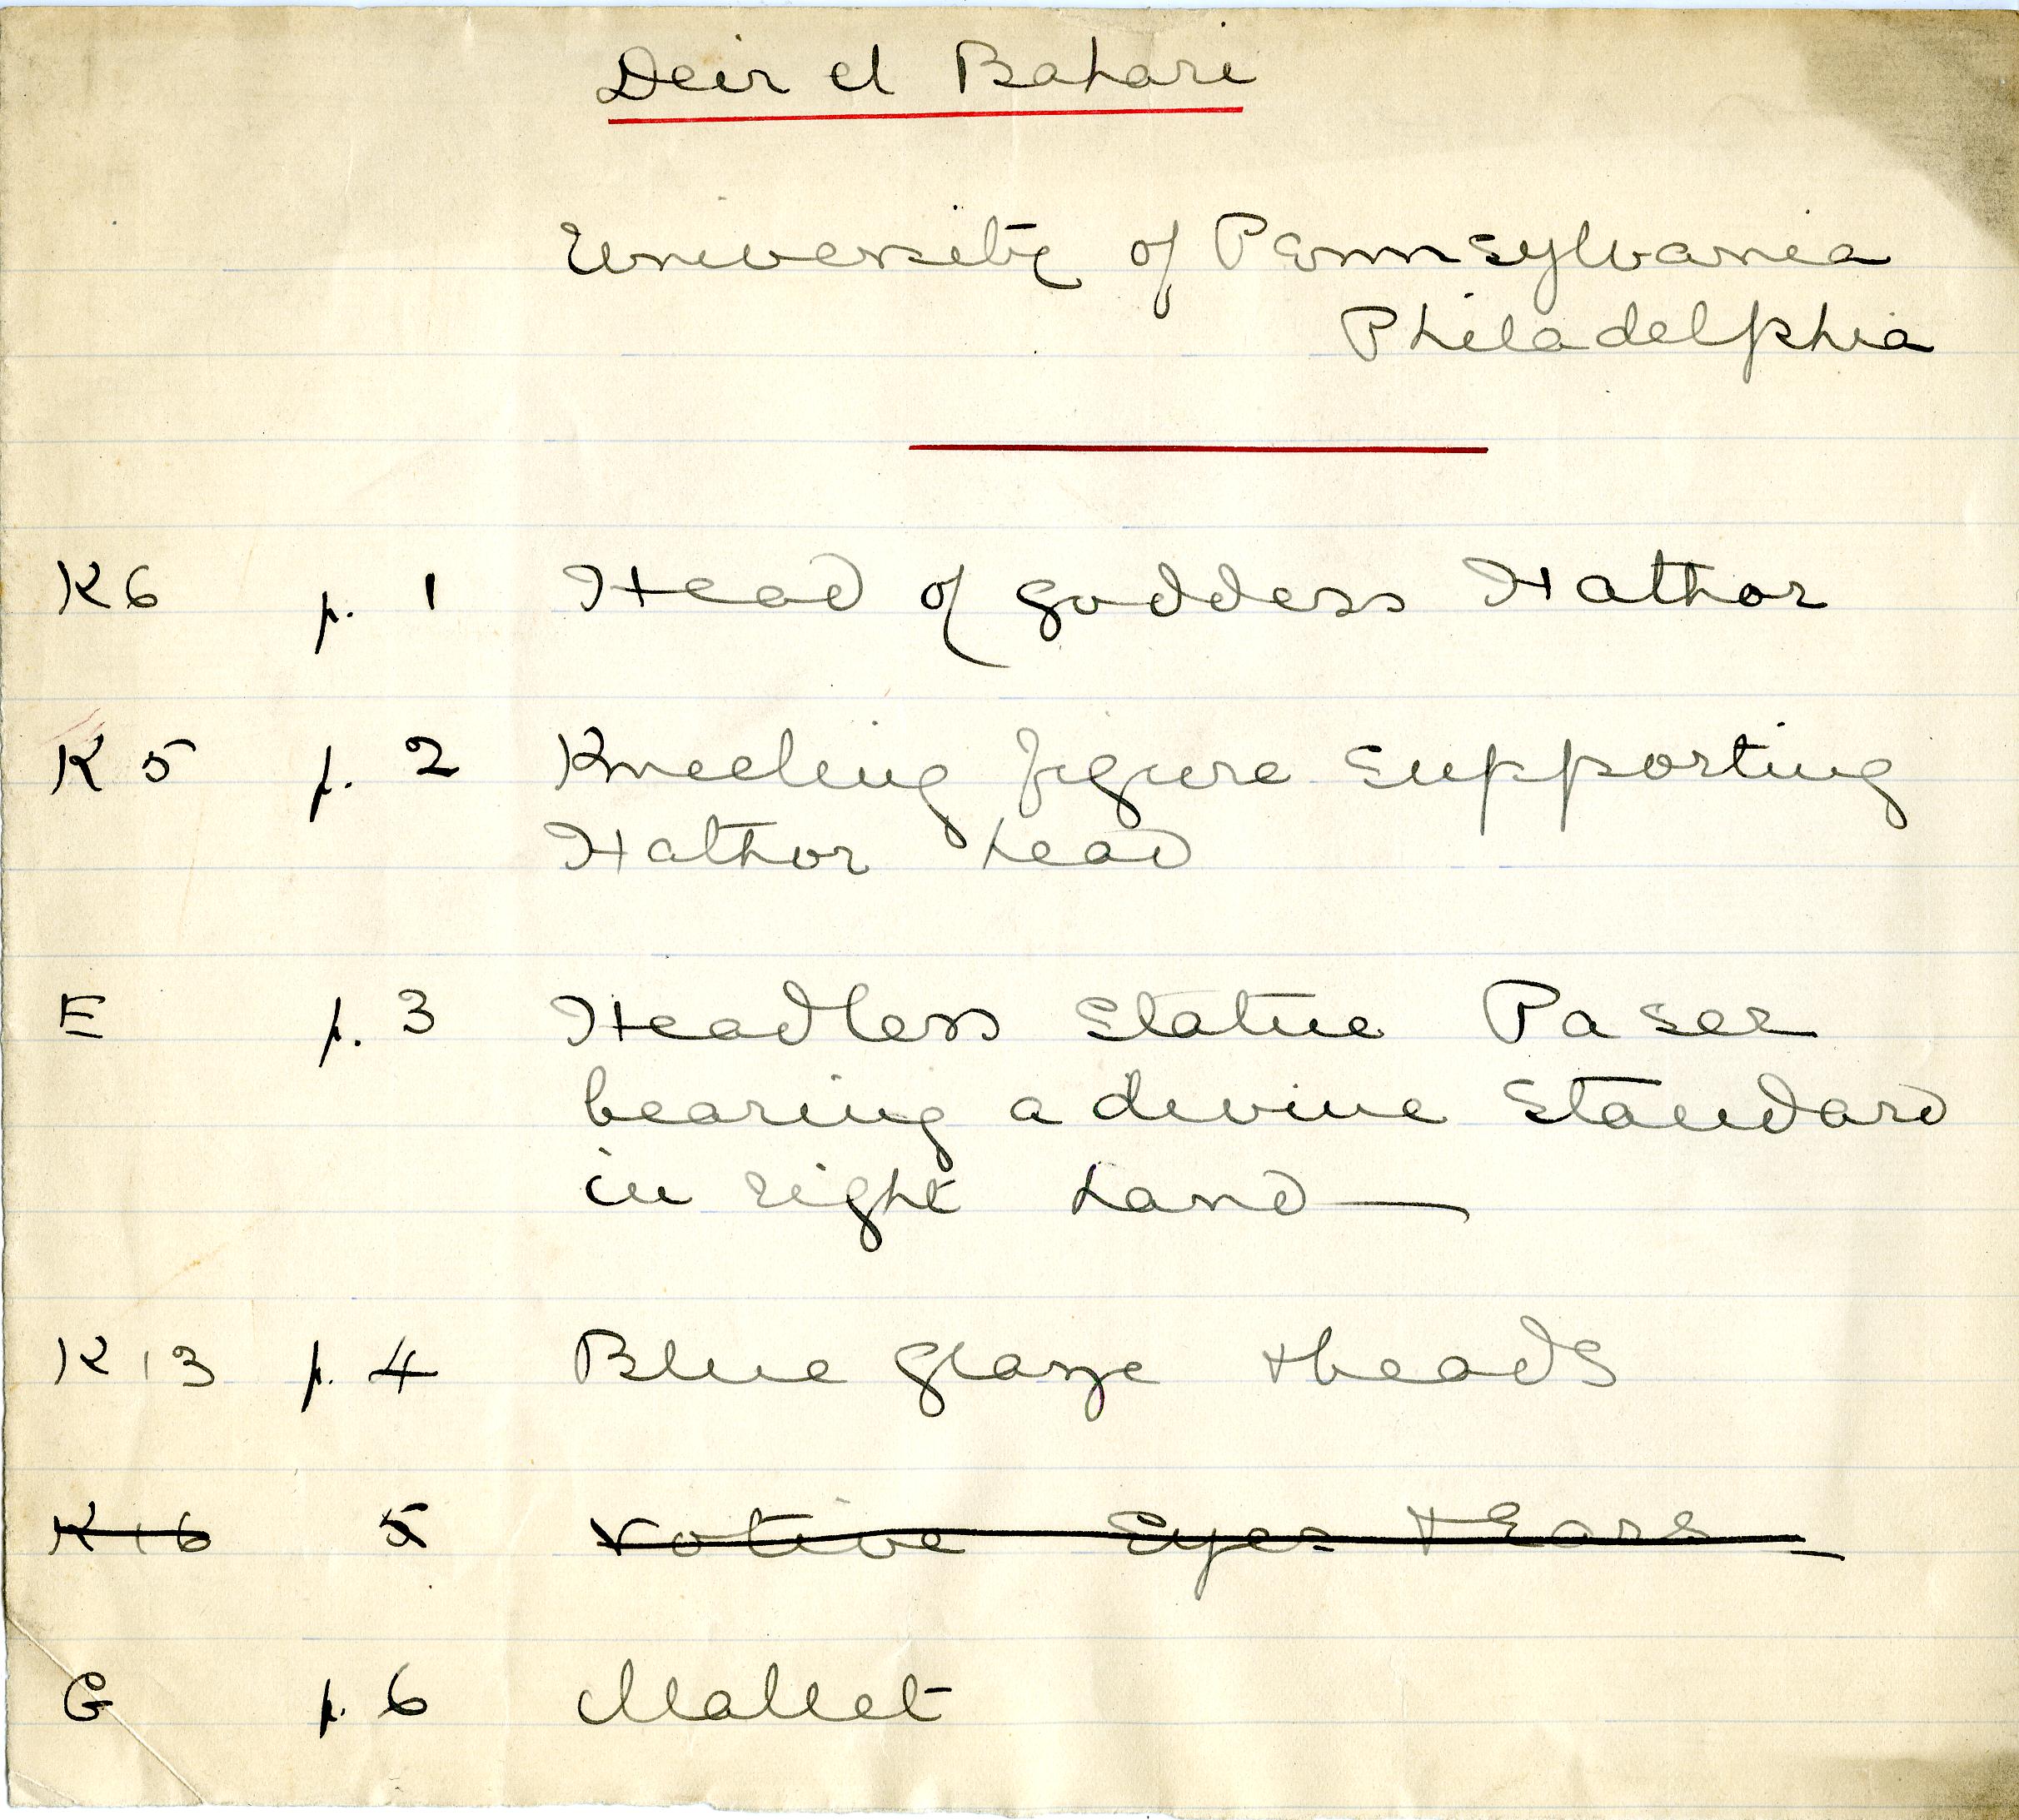 Deir el Bahari
University of Pennsylvania
Philadelphia
K6 p. 1 Head of goddess Hathor
K 5 p. 2 Kneeling figure supporting
Hathor head
E p. 3 Headless Statue Paser
bearing a divine Standard
in right hand —
K 13 p. 4 Blue glaze + beads
K 16 5 Votive Eyes + Ears
G p. 6 Mallet